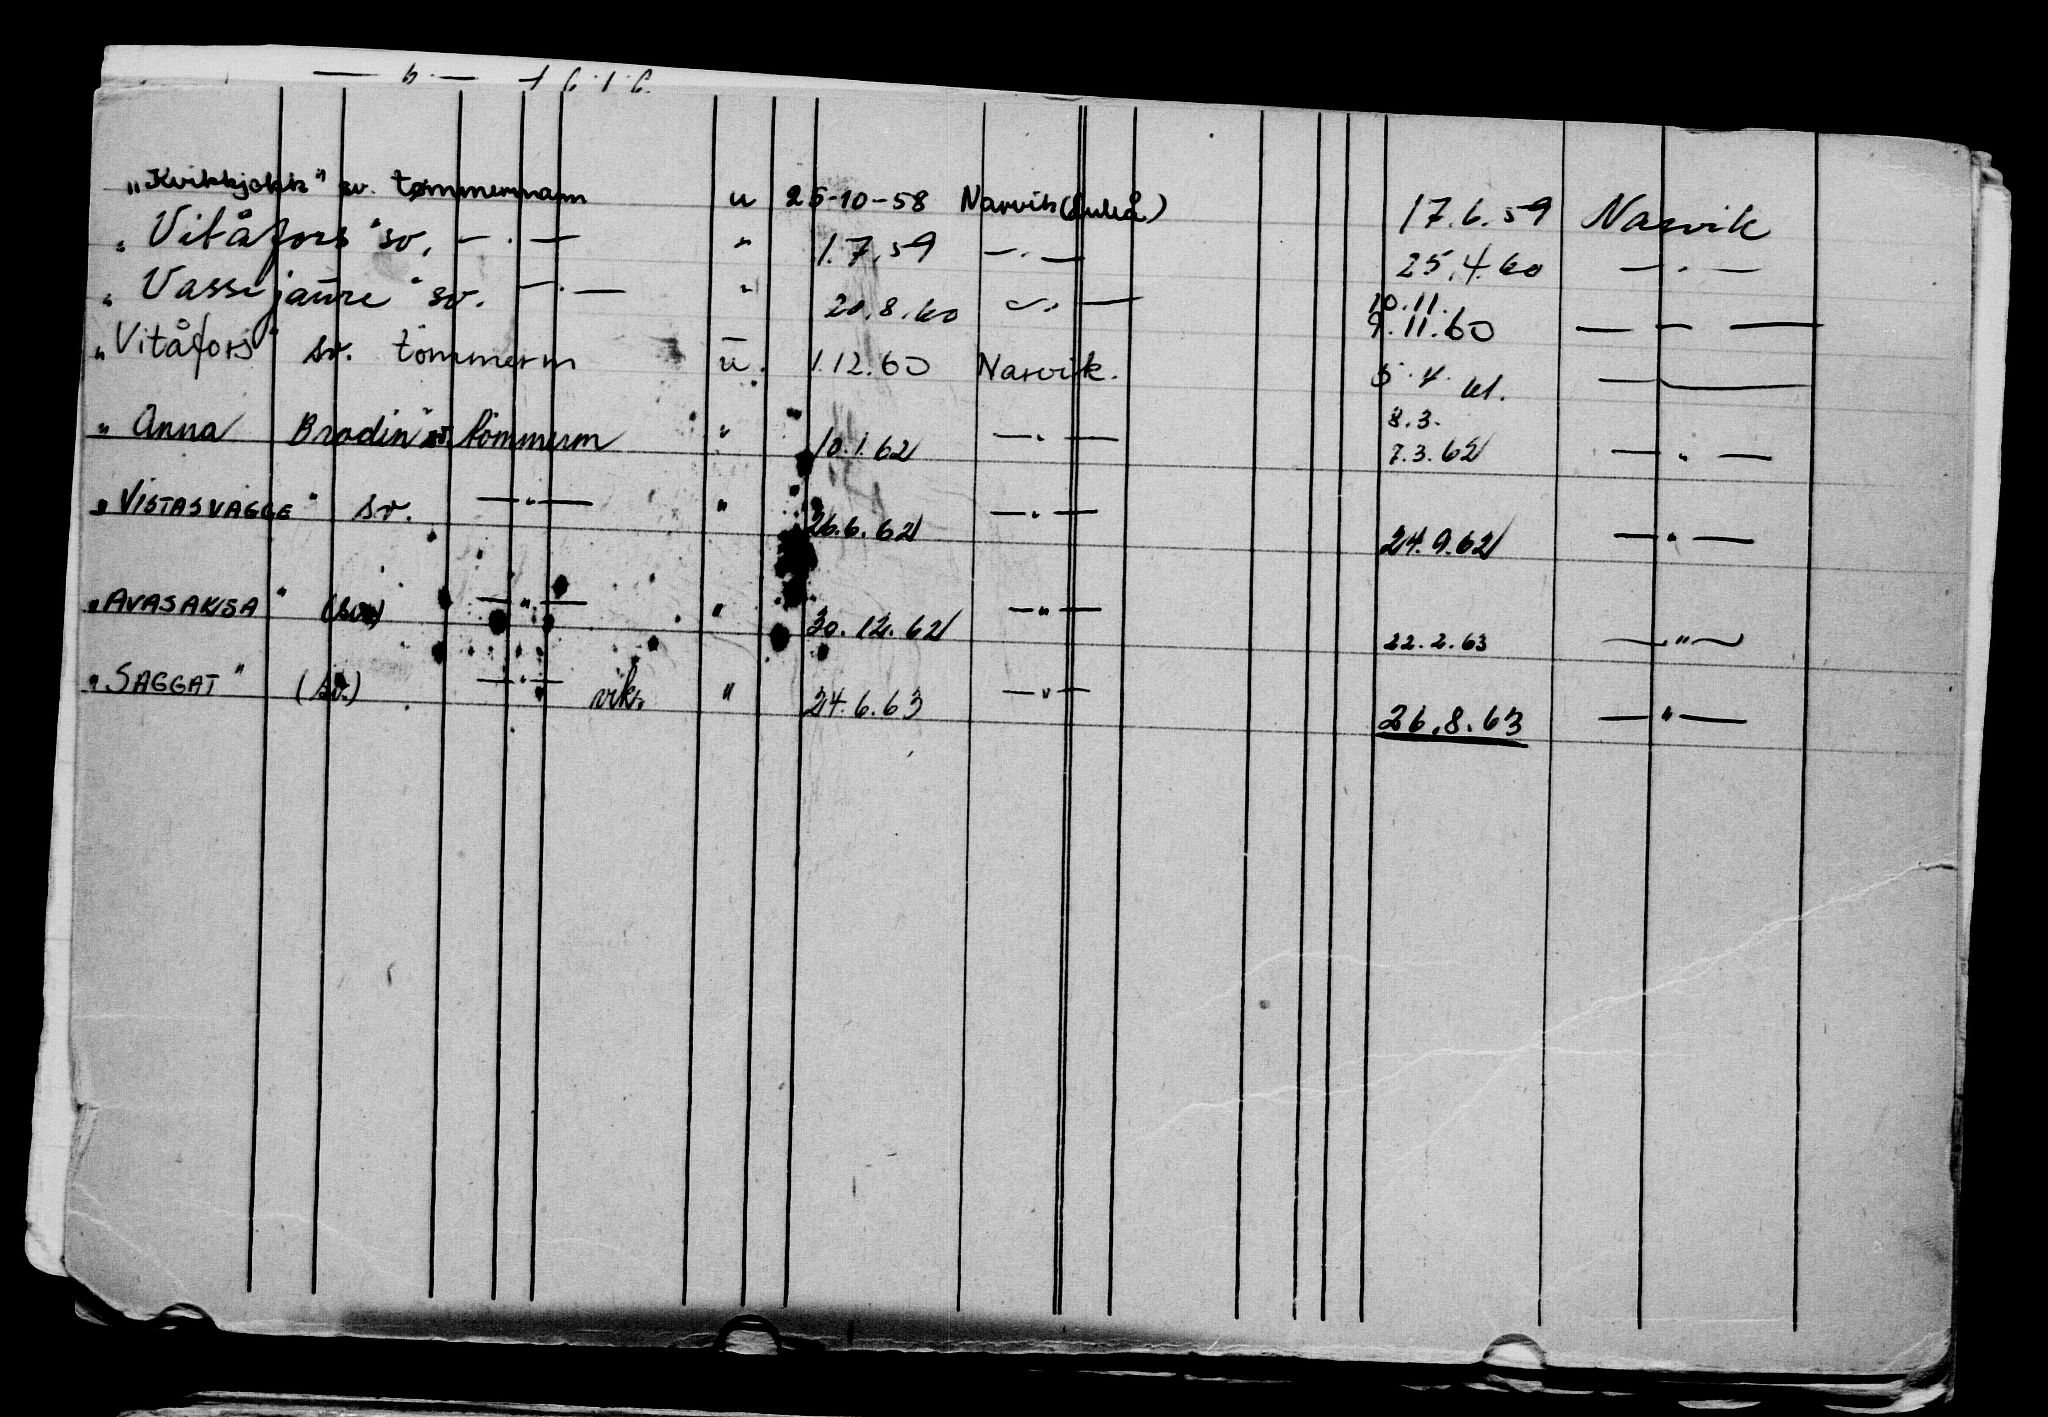 — " — 1616.
„Kvikkjokk" sv. tømmermann u 25-10-58 Narvik (Luleå) 17.6.59 Narvik
„Vitåfors" sv. — " — " 1.7.59 — " — 25.4.60 — " —
„Vassijaure" sv. — " — " 20.8.60 — " — 10.11.
9.11.60 — " —
„Vitåfors" sv. tömmerm u. 1.12.60 Narvik. 5.4.61. — —
„Anna Brodin" sv. tömmerm " 10.1.62 — " — 8.3.
7.3.62 — " —
„VISTASVAGGE" sv. — " — " 26.6.62 — " — 24.9.62 — " —
„AVASAKSA" (sv.) — " — " 30.12.62 — " — 22.2.63 — " —
„SAGGAT" (sv.) — " — vik. " 24.6.63 — " — 26.8.63 — " —